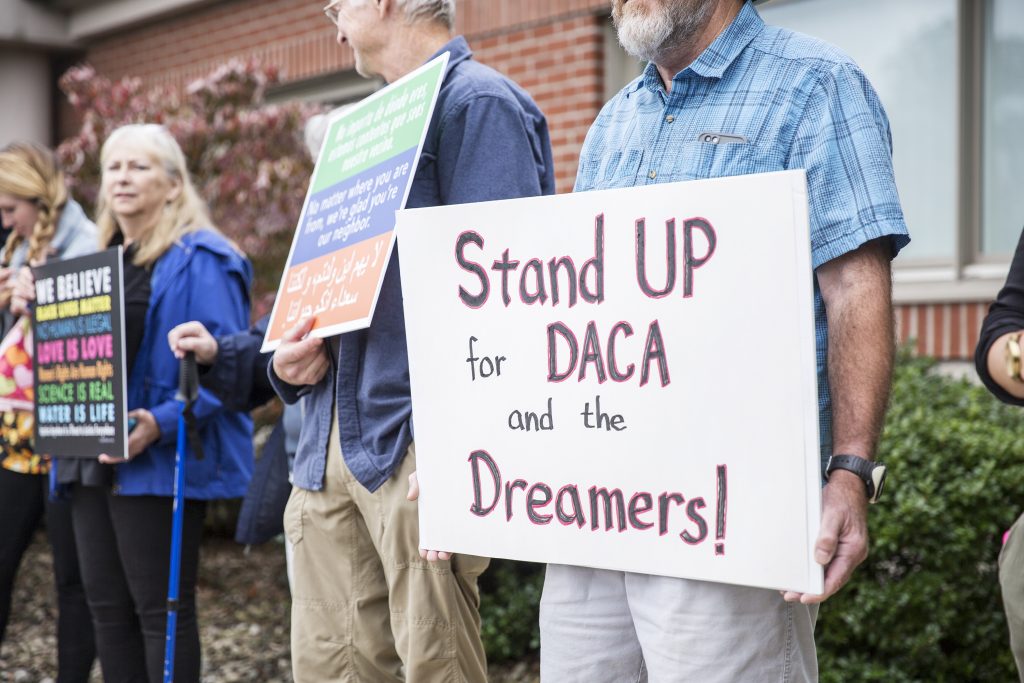 WE BELIEVE
BLACK LIVES MATTER
NO HUMAN IS ILLEGAL
LOVE IS LOVE
Women's Rights Are Human Rights
SCIENCE IS REAL
WATER IS LIFE
No importa de dónde eres,
estamos contentos que seas
nuestro vecino.
No matter where you are
from, we're glad you're
our neighbor.
لا يهم
سعداء
Stand UP
for DACA
and the
Dreamers!